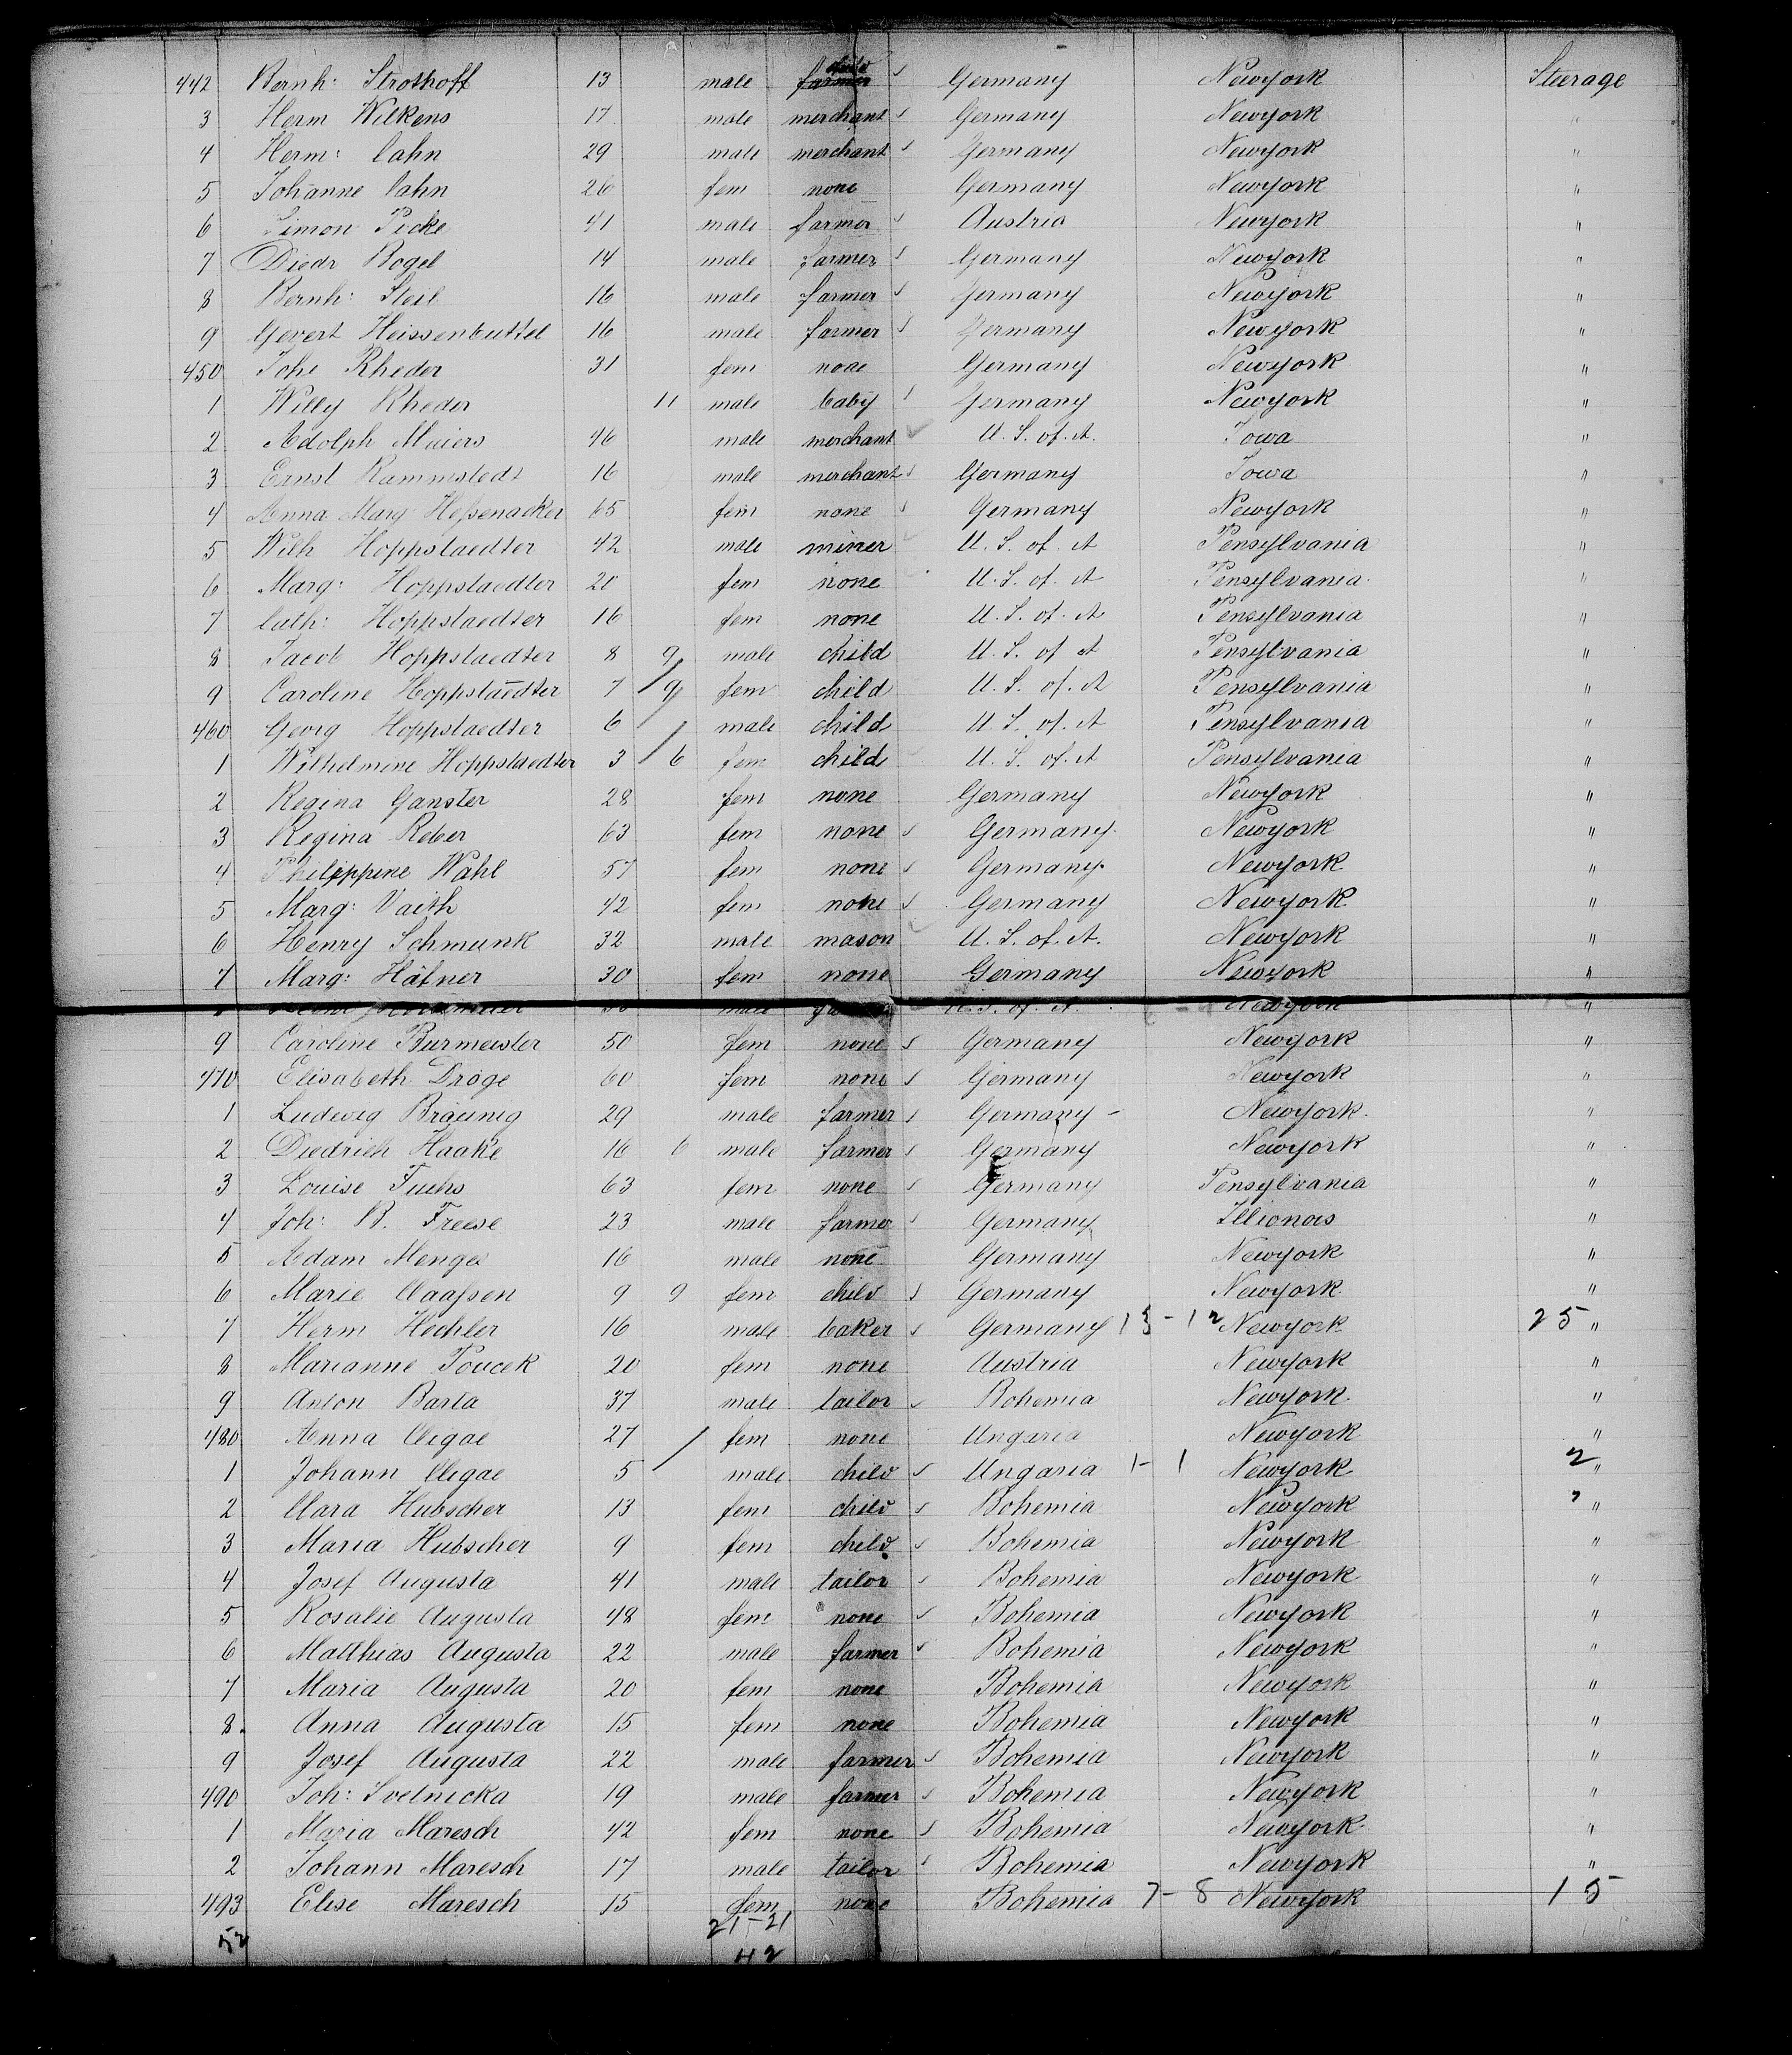 442 Bernh: Strothoff 13 male child farmer Germany Newyork Steerage
3 Herm Wilkens 17 male merchant Germany Newyork "
4 Herm: Cahn 29 male merchant Germany Newyork "
5 Johanne Cahn 26 fem none Germany Newyork "
6 Simon Picke 41 male farmer Austria Newyork "
7 Diedr Bogel 14 male farmer Germany Newyork "
8 Bernh: Steil 16 male farmer Germany Newyork "
9 Gevert Heissenbuttel 16 male farmer Germany Newyork "
450 Johe Rheder 31 fem none Germany Newyork "
1 Willy Rheder 11 male baby Germany Newyork "
2 Adolph Maiers 46 male merchant U. S. of. A. Iowa "
3 Ernst Rammstedt 16 male merchant Germany Iowa "
4 Anna Marg Heßenacker 65 fem none Germany Newyork "
5 Wilh Hoppstaedter 42 male miner U. S. of. A Pensylvania "
6 Marg: Hoppstaedter 20 fem none U. S. of. A Pensylvania "
7 Cath: Hoppstaedter 16 fem none U. S. of. A Pensylvania "
8 Jacob Hoppstaedter 8 9 male child U. S. of A Pensylvania "
9 Caroline Hoppstaedter 7 9 fem child U. S. of. A Pensylvania "
460 Georg Hoppstaedter 6 male child U. S. of. A Pensylvania "
1 Wilhelmine Hoppstaedter 3 6 fem child U. S. of. A Pensylvania "
2 Regina Ganster 28 fem none Germany Newyork "
3 Regina Reber 63 fem none Germany Newyork "
4 Philippine Wahl 57 fem none Germany Newyork "
5 Marg: Vaith 42 fem none Germany Newyork "
6 Henry Schmunk 32 male mason U. S. of. A. Newyork "
7 Marg: Häfner 30 fem none Germany Newyork "
male U. S. of. A. Newyork "
9 Caroline Burmeister 50 fem none Germany Newyork "
470 Elisabeth Dröge 60 fem none Germany Newyork "
1 Ludwig Bräunig 29 male farmer Germany - Newyork "
2 Diedrich Haake 16 6 male farmer Germany Newyork "
3 Louise Fuchs 63 fem none Germany Pensylvania "
4 Joh: B. Freese 23 male farmer Germany Illionois "
5 Adam Menges 16 male none Germany Newyork "
6 Marie Claaßen 9 9 fem child Germany Newyork "
7 Herm Hechler 16 male baker Germany 13-12 Newyork 25 "
8 Marianne Poucek 20 fem none Austria Newyork "
9 Anton Barta 37 male tailor Bohemia Newyork "
480 Anna 27 fem none Ungaria Newyork "
1 Johann 5 male child Ungaria 1-1 Newyork 2 "
2 Clara Hubscher 13 fem child Bohemia Newyork "
3 Maria Hubscher 9 fem child Bohemia Newyork "
4 Josef Augusta 41 male tailor Bohemia Newyork "
5 Rosalie Augusta 48 fem none Bohemia Newyork "
6 Matthias Augusta 22 male farmer Bohemia Newyork "
7 Maria Augusta 20 fem none Bohemia Newyork "
8. Anna Augusta 15 fem none Bohemia Newyork "
9 Josef Augusta 22 male farmer Bohemia Newyork "
490 Joh: Svetnicka 19 male farmer Bohemia Newyork "
1 Maria Maresch 42 fem none Bohemia Newyork "
2 Johann Maresch 17 male tailor Bohemia Newyork "
493 Elise Maresch 15 fem none Bohemia 7-8 Newyork 15
52 21-21
42